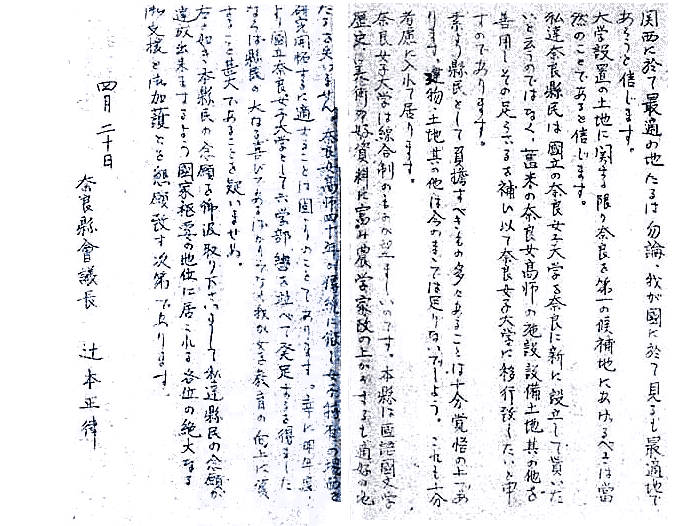 関西に於て最適の地たるは勿論、我が國に於て見るも最適地で
あろうと信じます。
大学設置の土地に関する限り奈良を第一の候補地にあげるべきは當
然のことであると信じます。
私達奈良縣民は國立の奈良女子大学を奈良に新に設立して貰いた
いと云うのではなく、舊来の奈良女高師の施設設備土地其の他を
善用しその足らざるを補い以て奈良女子大学に移行致したいと申
すのであります。
素より縣民として負擔すべきもの多々あることは十分覚悟の上であ
ります。建物・土地其の他は今のままでは足りないでしよう。これも十分
考慮に入れて居ります。
奈良女子大学は綜合制のものが望ましいのです。本縣は國語國文学
歴史に美術の好資料に富み農学家政の上からするも適好の地
たるを失いません。奈良女高師四十年の傳統に徴し女子特有の
研究開拓するに適することは固よりのことであります。幸に明年度
より國立奈良女子大学として六学部 を並べて発足するを得ました
ならば縣民の大なる喜びであるばかりでなく我が女子教育の向上に資
すること甚大であることを疑いませぬ。
右の如き本縣民の念願を御汲取り下さいまして私達縣民の念願が
達成出来まするよう國家枢要の地位に居られる各位の絶大なる
御支援と御加護とを懇願致す次第であります。
四月二十日
奈良縣會議長 辻本正律